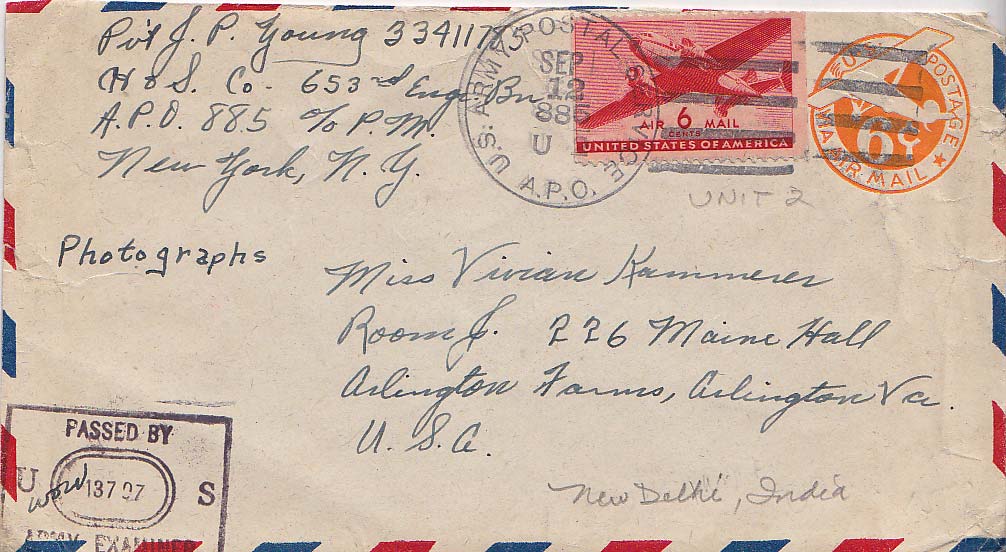 Pvt J. P. Young 33411775
H & S. Co. 653rd Engr Bn.
A.P.O. 885 c/o P.M.
New York, N. Y.
U.S. ARMY POSTAL SERVICE
SEP
12
885
U
A.P.O.
AIR 6 MAIL
CENTS
UNITED STATES OF AMERICA
U.S. POSTAGE
6¢
VIA AIR MAIL
UNIT 2
Photographs
Miss Vivian Kammerer
Room J. 226 Maine Hall
Arlington Farms, Arlington Va.
U. S. A.
New Delhi, India
PASSED BY
U 13707 S
ARMY EXAMINER